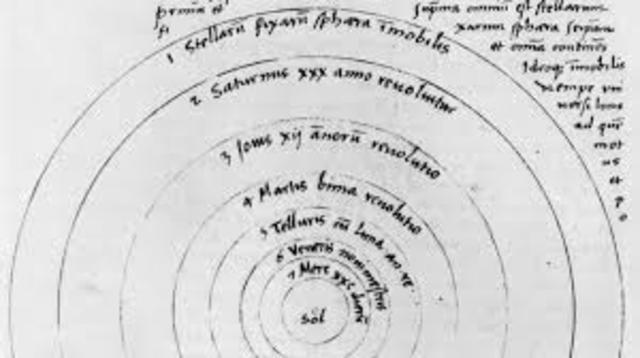 prima et
suprema omnium est stellarum
xarum sphæra seipsam
et omnia continens
Ideoqz immobilis
nempe vni
uersi locus
ad quem
mot
us
et
1 Stellarū fixarū sphæra īmobilis
2 Saturnus xxx anno reuoluitur
3 Jouis xij ānorū reuolutio
4 Martis bima reuolutio
5 Telluris cū Luna an. re.
6 Veneris nonimestris
7 Merc. xxc dierū
Sol